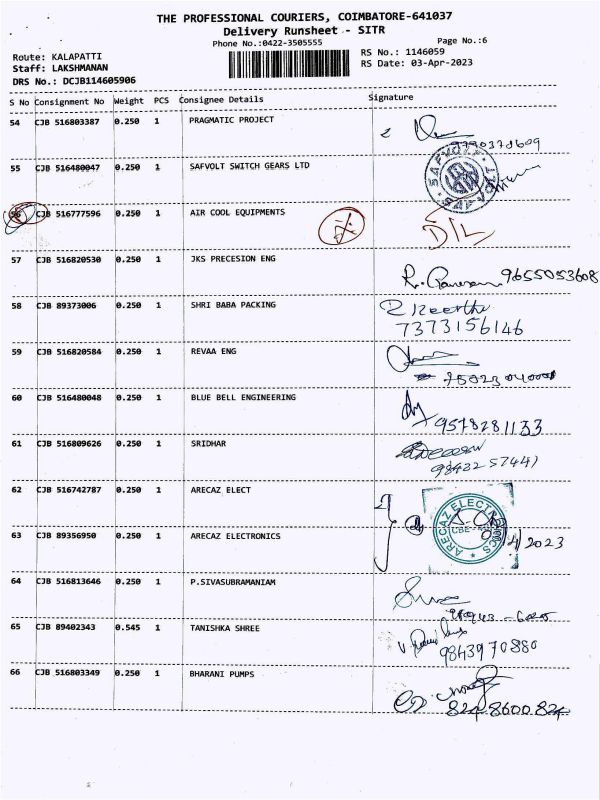 THE PROFESSIONAL COURIERS, COIMBATORE-641037
Delivery Runsheet - SITR
Phone No.:0422-3505555
Page No.:6
Route: KALAPATTI
RS No.: 1146059
Staff: LAKSHMANAN
RS Date: 03-Apr-2023
DRS No.: DCJB114605906
S No Consignment No Weight PCS Consignee Details Signature
54 CJB 516803387 0.250 1 PRAGMATIC PROJECT
55 CJB 516480047 0.250 1 SAFVOLT SWITCH GEARS LTD
SAFVOLT
56 CJB 516777596 0.250 1 AIR COOL EQUIPMENTS
D/L
57 CJB 516820530 0.250 1 JKS PRECESION ENG
9655053608
58 CJB 89373006 0.250 1 SHRI BABA PACKING
7373156146
59 CJB 516820584 0.250 1 REVAA ENG
60 CJB 516480048 0.250 1 BLUE BELL ENGINEERING
9578281133
61 CJB 516809626 0.250 1 SRIDHAR
62 CJB 516742787 0.250 1 ARECAZ ELECT
ARECAZ ELECTRONICS
63 CJB 89356950 0.250 1 ARECAZ ELECTRONICS
64 CJB 516813646 0.250 1 P.SIVASUBRAMANIAM
65 CJB 89402343 0.545 1 TANISHKA SHREE
9843970880
66 CJB 516803349 0.250 1 BHARANI PUMPS
824 8600 824